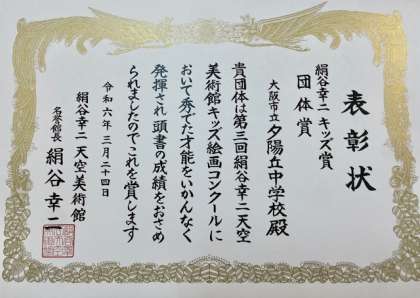 表彰状
絹谷幸二 キッズ賞
団体賞
大阪市立 夕陽丘中学校 殿
貴団体は第三回絹谷幸二天空
美術館キッズ絵画コンクールに
おいて秀でた才能をいかんなく
発揮され頭書の成績をおさめ
られましたのでこれを賞します
令和六年三月二十四日
絹谷幸二 天空美術館
名誉館長 絹谷幸二